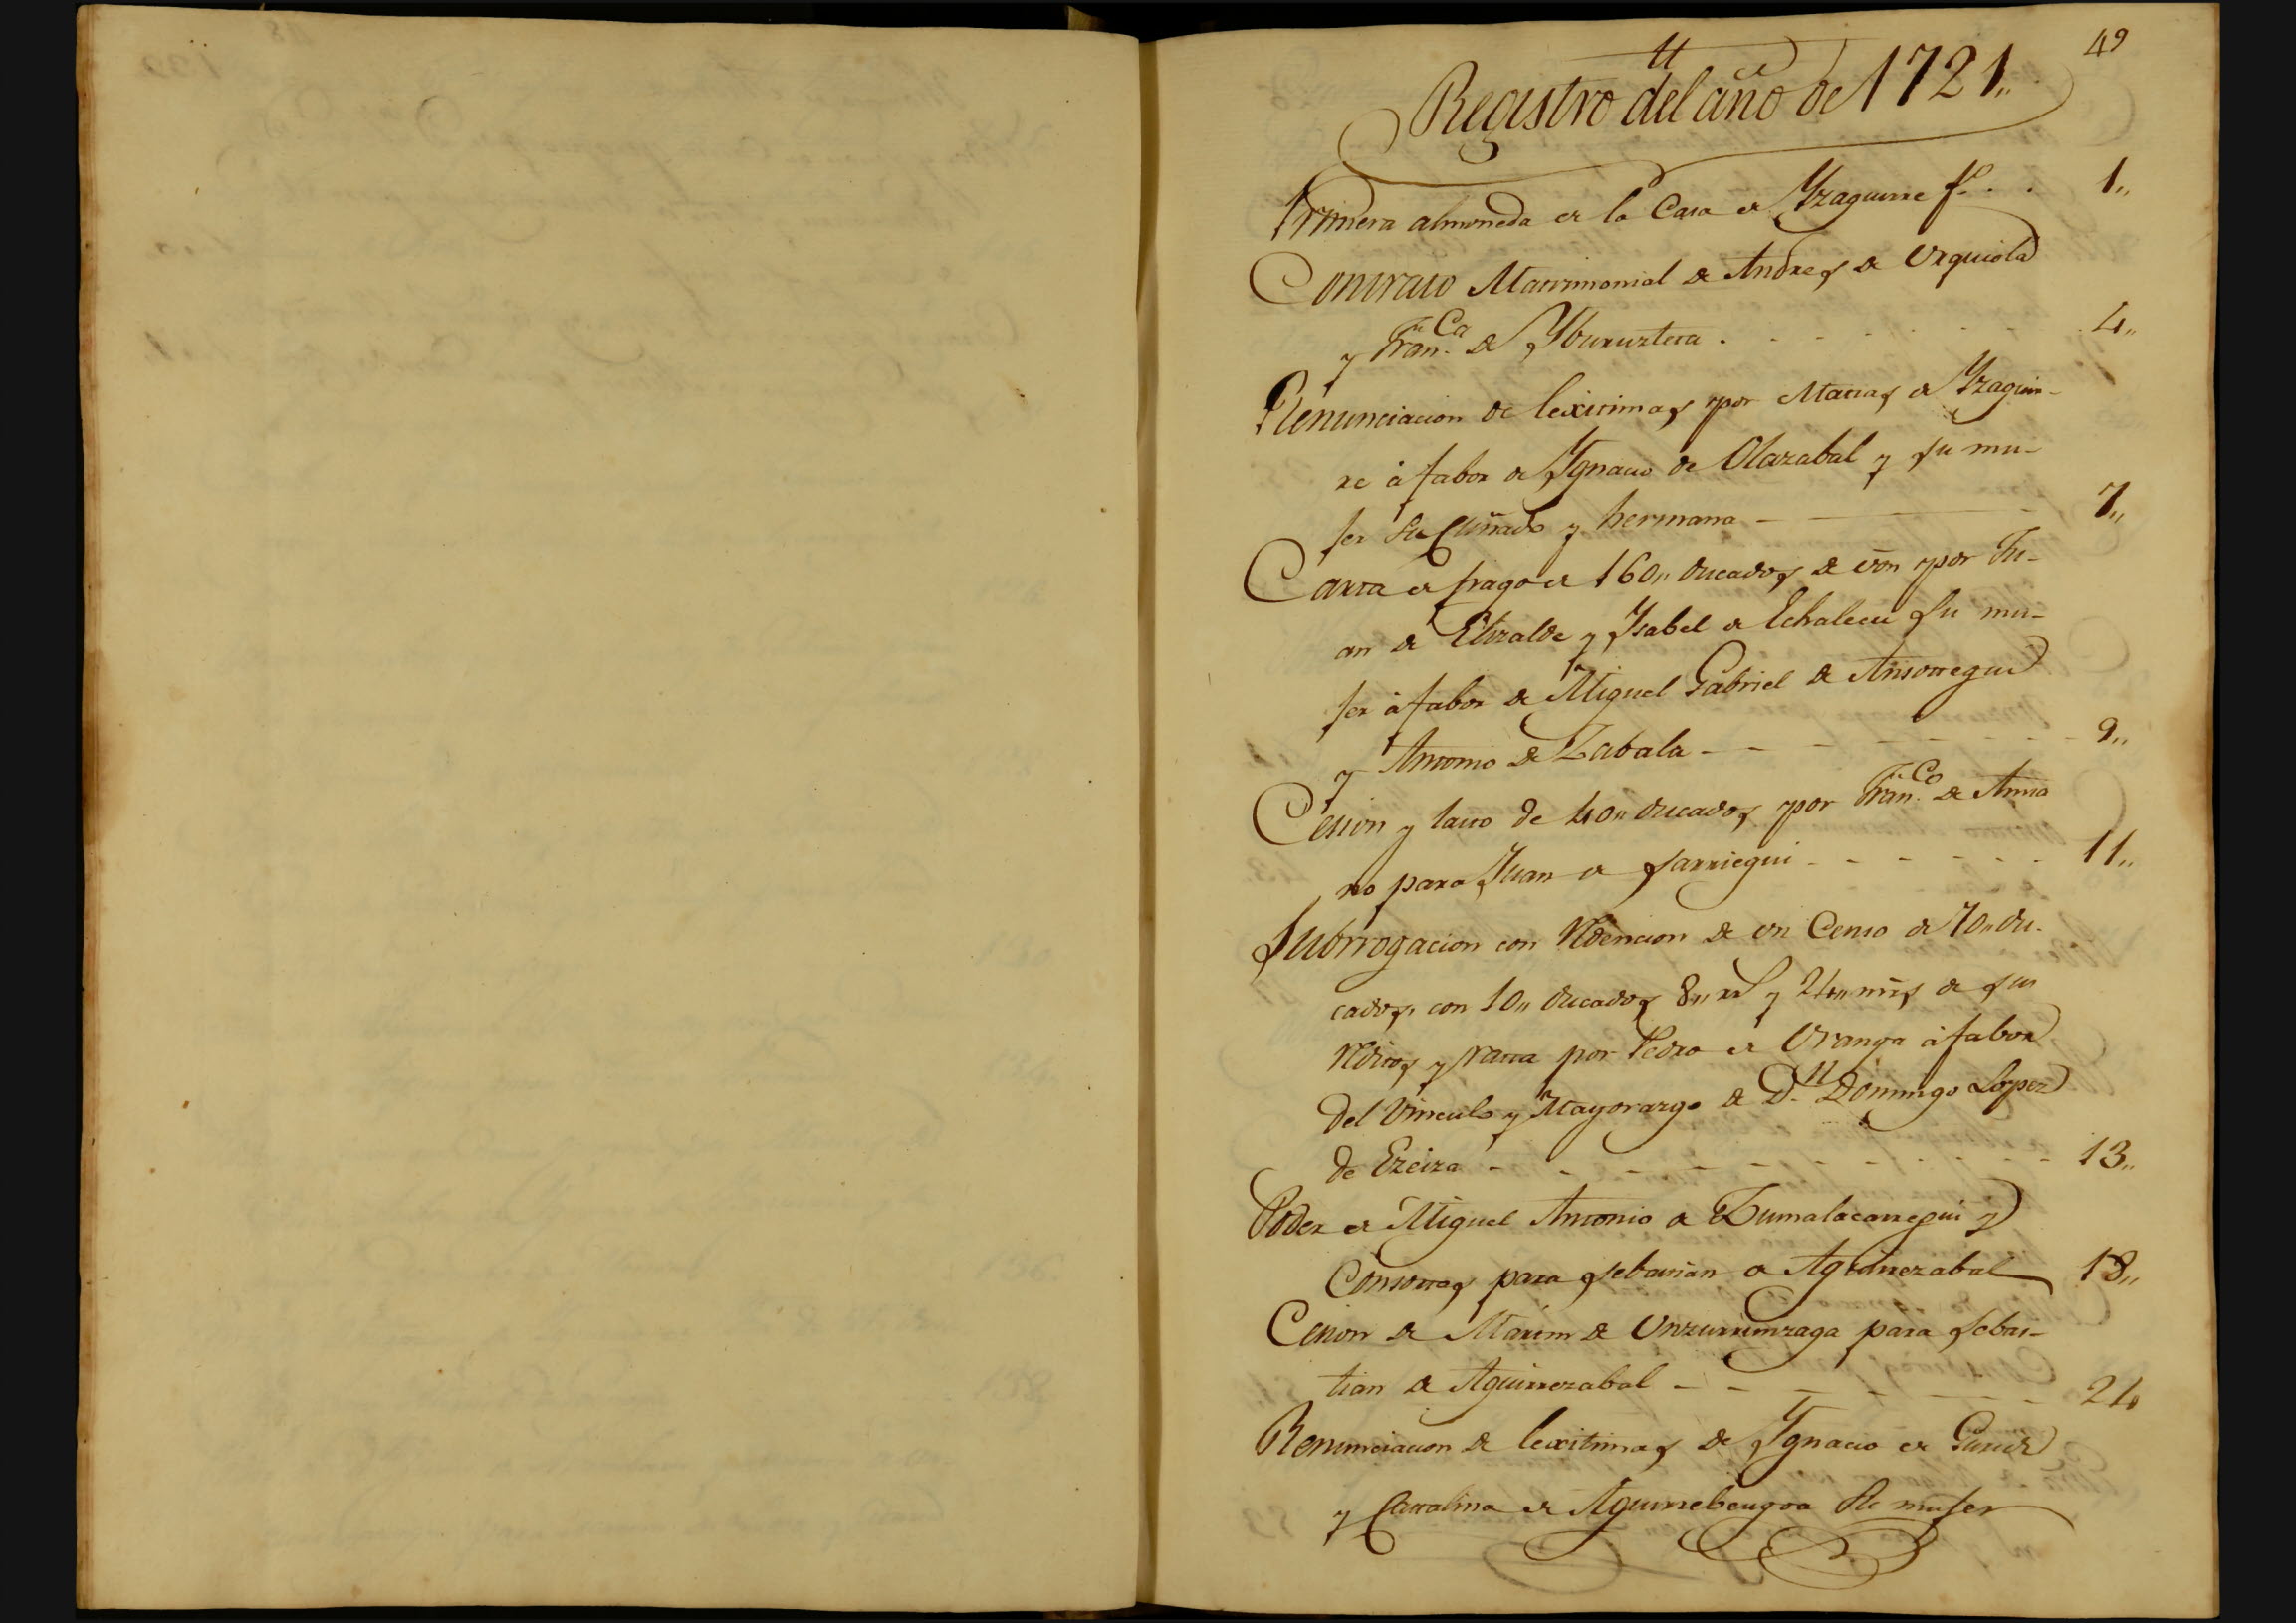 49
Registro del año de 1721,,
Primera almoneda de la Casa de Yzaguirre fº. . 1,,
Contrato Matrimonial de Andres de Urquiola
y Fran.ca de Yburuzteta . - - - - 4,,
Renunciacion de lexitimas por Matias de Yzaguir-
re à fabor de Ygnacio de Olazabal y su mu-
jer su Cuñado y hermana - - - 7,,
Carta de pago de 160,, ducados de von por Ju-
an de Elizalde y Ysabel de Echalecu su mu-
jer à fabor de Miguel Gabriel de Ansorregui
y Antonio de Zabala - - - - - - - 9,,
Cesion y lasto de 40,, ducados por Fran.co de Anna
no para Juan de Sarriegui - - - - - - 11,,
Subrrogacion con Rdencion de un Censo de 70,, du-
cados, con 10,, ducados 8,, rs y 24,, mrs de sus
Rditos y rata por Pedro de Uranga à fabor
del Vinculo y Mayorazgo de D.n Domingo Lopez
de Ezeiza - - - - - - - - - - 13,,
Poder de Miguel Antonio de Zumalacarregui y
Consortes para Sebastian de Aguirrezabal 18,,
Cesion de Martin de Unzurrunzaga para Sebas-
tian de Aguirrezabal - - - - - - 24
Renunciacion de lexitimas de Ygnacio de
y Catalina de Aguirrebengoa su mujer